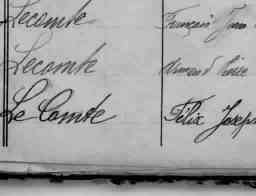 Lecomte François Jean
Lecomte Armand
Le Comte Félix Joseph